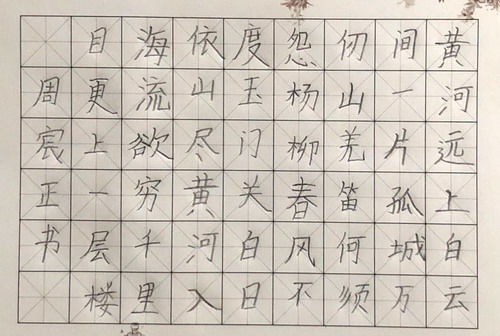 黄河远上白云
间一片孤城万
仞山羌笛何须
怨杨柳春风不
度玉门关白日
依山尽黄河入
海流欲穷千里
目更上一层楼
周宸正书